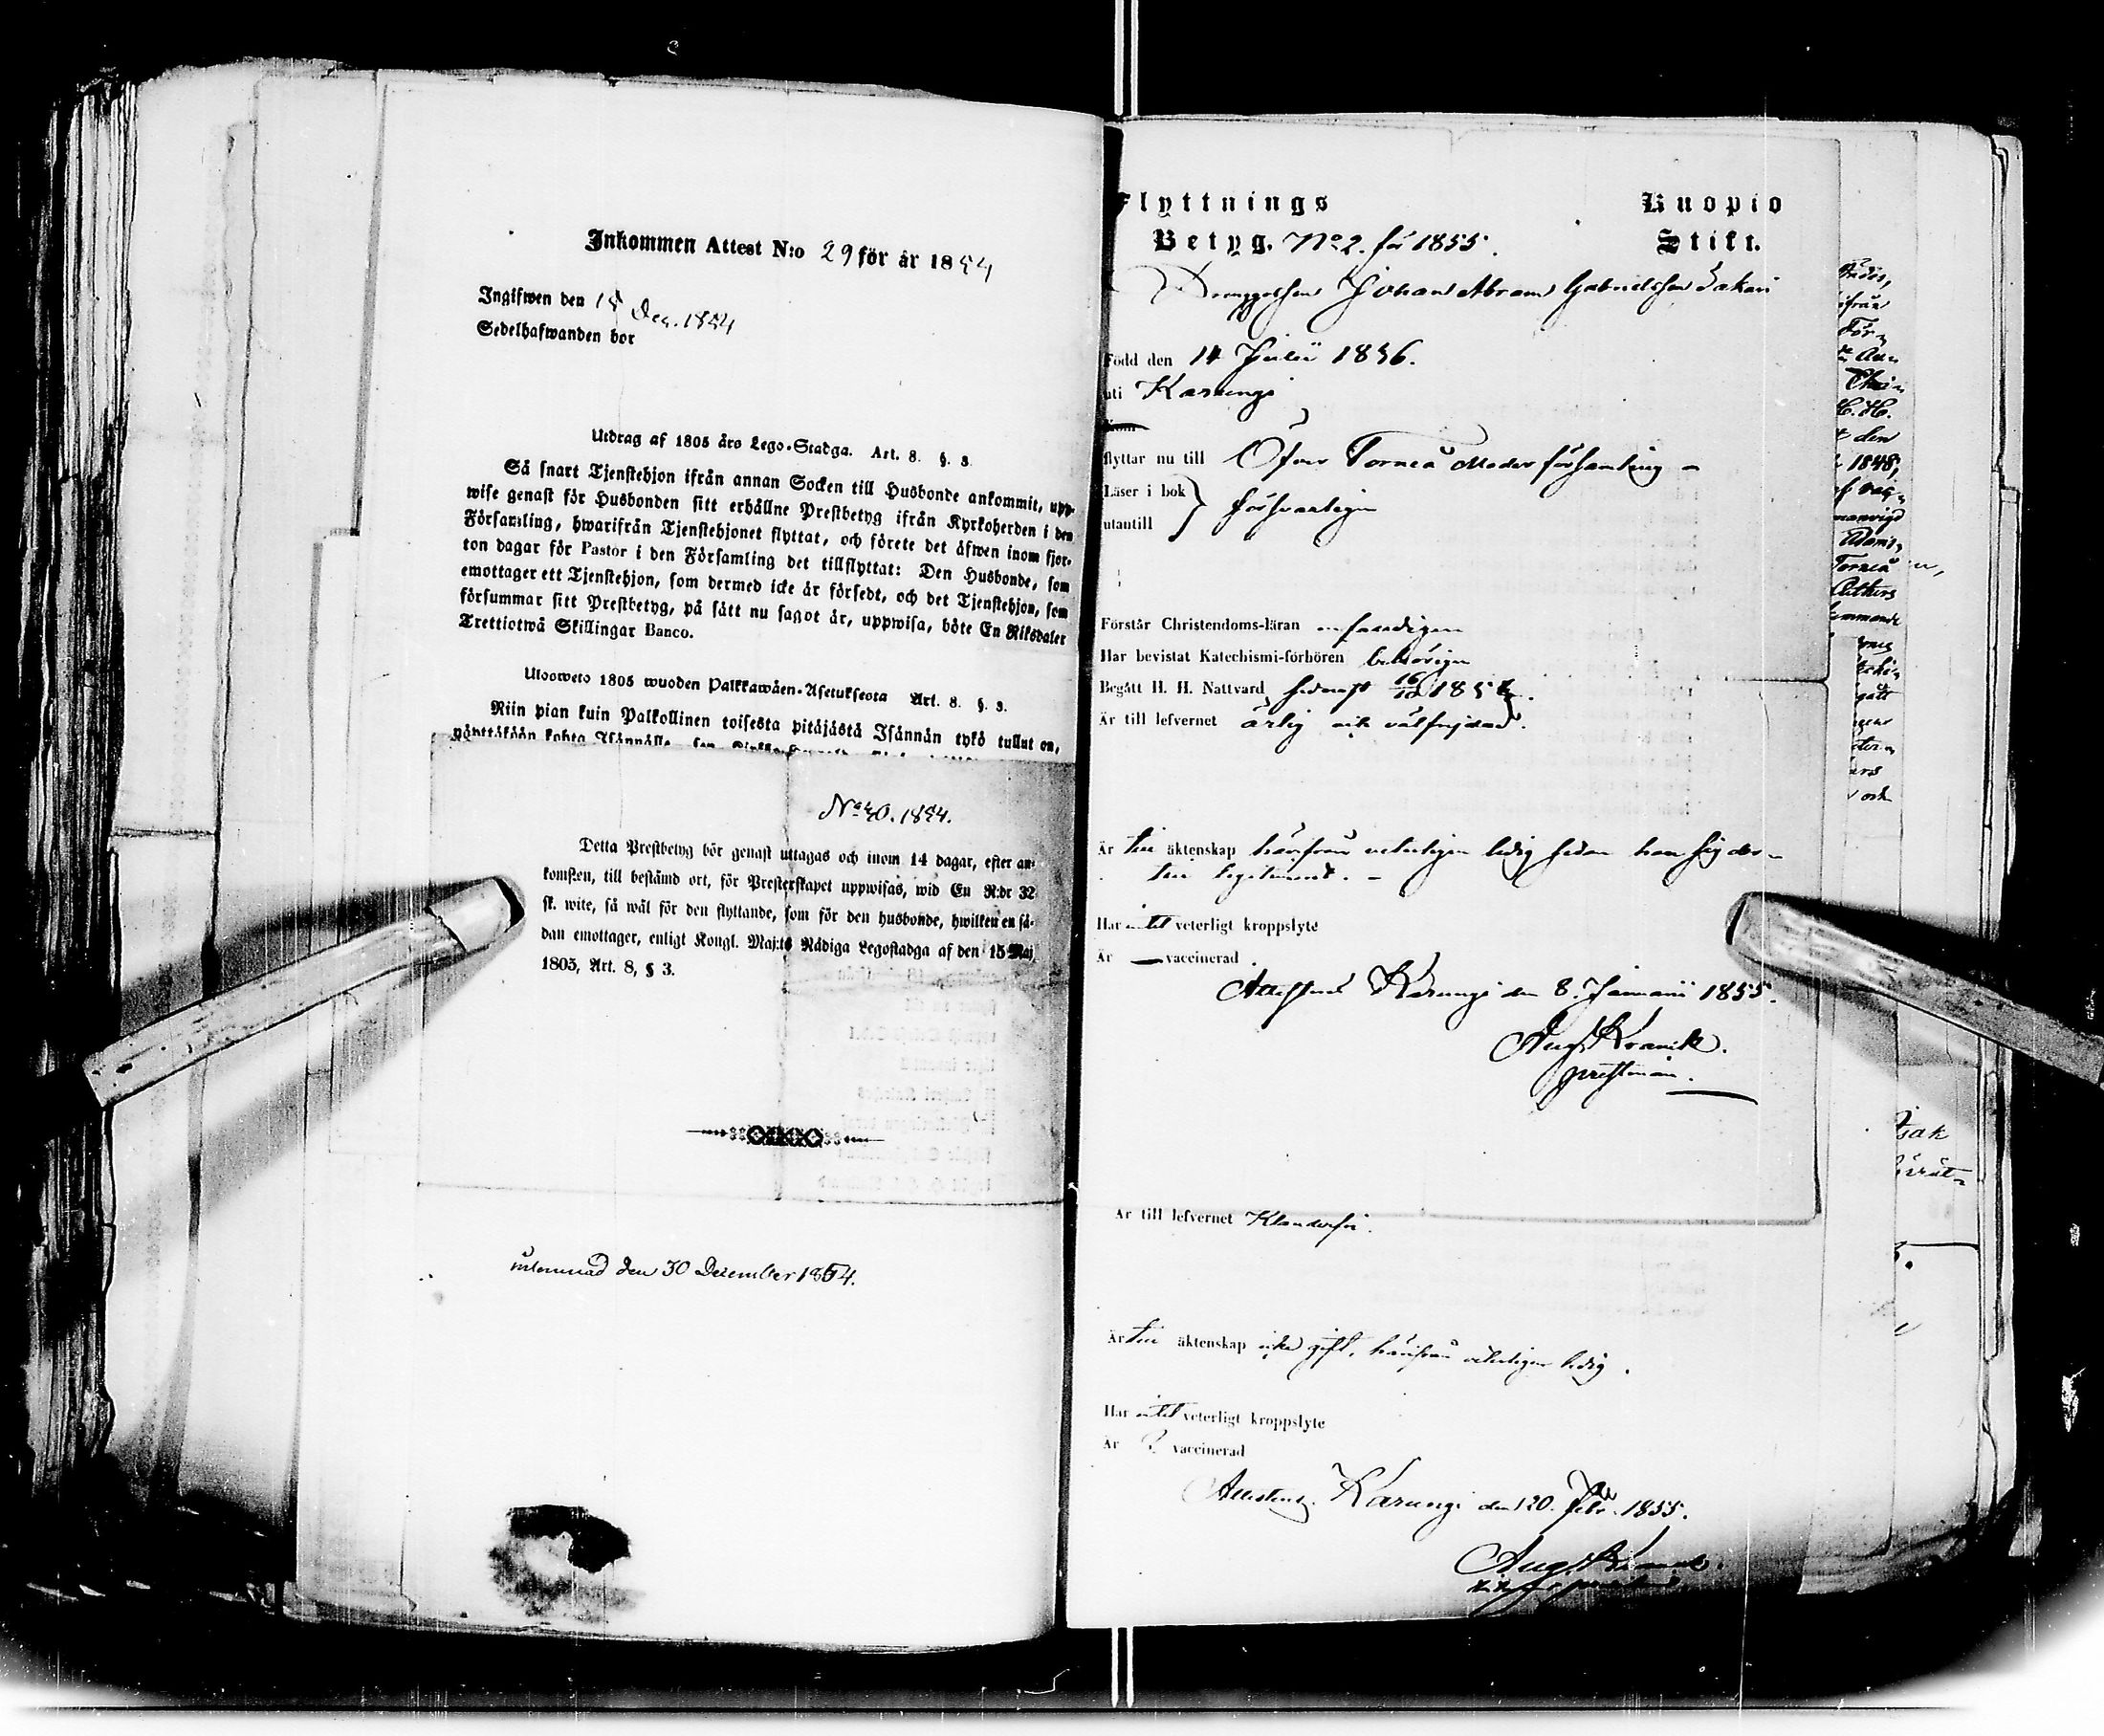 Inkommen Attest N:o 29 för år 1854
Ingifwen den 18 Dec. 1854
Sedelhafwanden bor
Utdrag af 1805 års Lego-Stadga. Art. 8. §. 3.
Så snart Tjenstehjon ifrån annan Socken till Husbonde ankommit, upp-
wise genast för Husbonden sitt erhållne Prestbetyg ifrån Kyrkoherden i den
Församling, hwarifrån Tjenstehjonet flyttat, och förete det äfwen inom fjor-
ton dagar för Pastor i den Församling det tillflyttat: Den Husbonde, som
emottager ett Tjenstehjon, som dermed icke är försedt, och det Tjenstehjon, som
försummar sitt Prestbetyg, på sätt nu sagot är, uppwisa, böte En Riksdaler
Trettiotwå Skillingar Banco.
Uloosweto 1805 wuoden Palkkawäen-Asetuksesta Art. 8. §. 3.
Niin pian kuin Palkollinen toisesta pitäjästä Isännän tykö tullut on,
N:o 30. 1854.
Detta Prestbetyg bör genast uttagas och inom 14 dagar, efter an-
komsten, till bestämd ort, för Presterskapet uppwisas, wid En R:dr 32
sk. wite, så wäl för den flyttande, som för den husbonde, hwilken en så-
dan emottager, enligt Kongl. Maj:ts Nådiga Legostadga af den 15 Maj
1805, Art. 8, § 3.
inlemnad den 30 December 1854.
Flyttnings Kuopio
Betyg. No 2. för 1855. Stift.
Johan Abram Gabrielsson Lakari
Född den 14 Julii 1836.
uti Karungi
Kom
flyttar nu till Öfver Torneå Moderförsamling
Läser i bok
utantill försvarligen
Förstår Christendoms-läran enfaldigen
Har bevistat Katechismi-förhören behörigen
Begått H. H. Nattvard sednast 16/10 1854.
Är till lefvernet ärlig och välfrejdad.
Är till äktenskap härifrån veterligen ledig sedan han sig der-
till legitimerat.
Har intet veterligt kroppslyte
Är — vaccinerad
Attesterar Karungi den 8. Januarii 1855.
Aug. Kranck.
prestman.
Är till lefvernet Klanderfri.
Är till äktenskap icke gift, härifrån veterligen ledig.
Har intet veterligt kroppslyte
Är ? vaccinerad
Attesterar Karungi den 20. Febr. 1855.
Aug. Kranck.